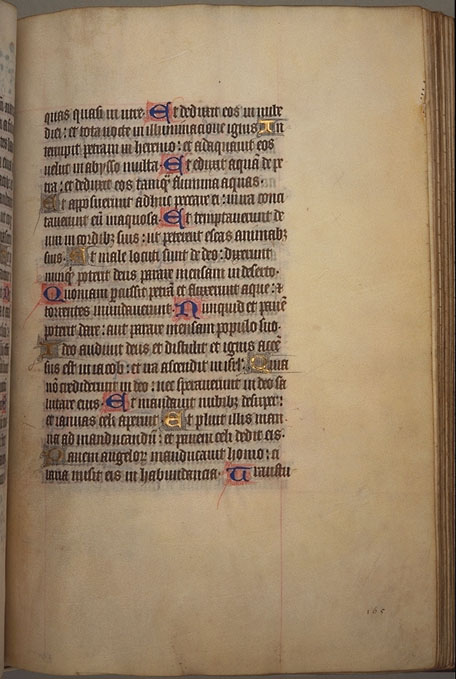 quas quasi in utre. Et deduxit eos in nube
diei: et tota nocte in illuminacione ignis. In
terrupit petram in heremo: et adaquauit eos
uelut in abysso multa. Et eduxit aquā de pe
tra: et deduxit eos tamq̄ flumina aquas.
Et apposuerunt adhuc peccare ei: in ira conci
tauerunt eū in aquosa. Et temptauerunt de
um in cordibꝫ suis: ut peterent escas animabꝫ
suis. Et male locuti sunt de deo: dixerunt
nunq̄ poterit deus parare mensam in deserto.
Quoniam ꝑcussit petrā et fluxerunt aque: ⁊
torrentes inundauerunt. Nunquid et panē
poterit dare: aut parare mensam populo suo.
Ideo audiuit deus et distulit: et ignis accē
sus est in iacob: et ira ascendit in isrl̄. Quia
nō crediderunt in deo: nec sperauerunt in deo sa
lutare eius. Et mandauit nubibꝫ desuper:
et ianuas celi aperuit. Et pluit illis man
na ad manducandū: et panem celi dedit eis.
Panem angeloꝝ manducauit homo: ci
baria misit eis in habundancia. Transtu
165